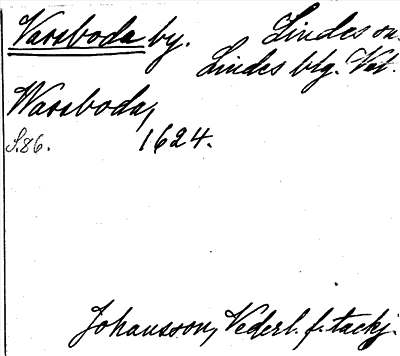 Varsboda by. Lindes sn.
Lindes blg. Vstl.
Warsboda,
S.86. 1624.
Johansson, Nederl. f. tackj.